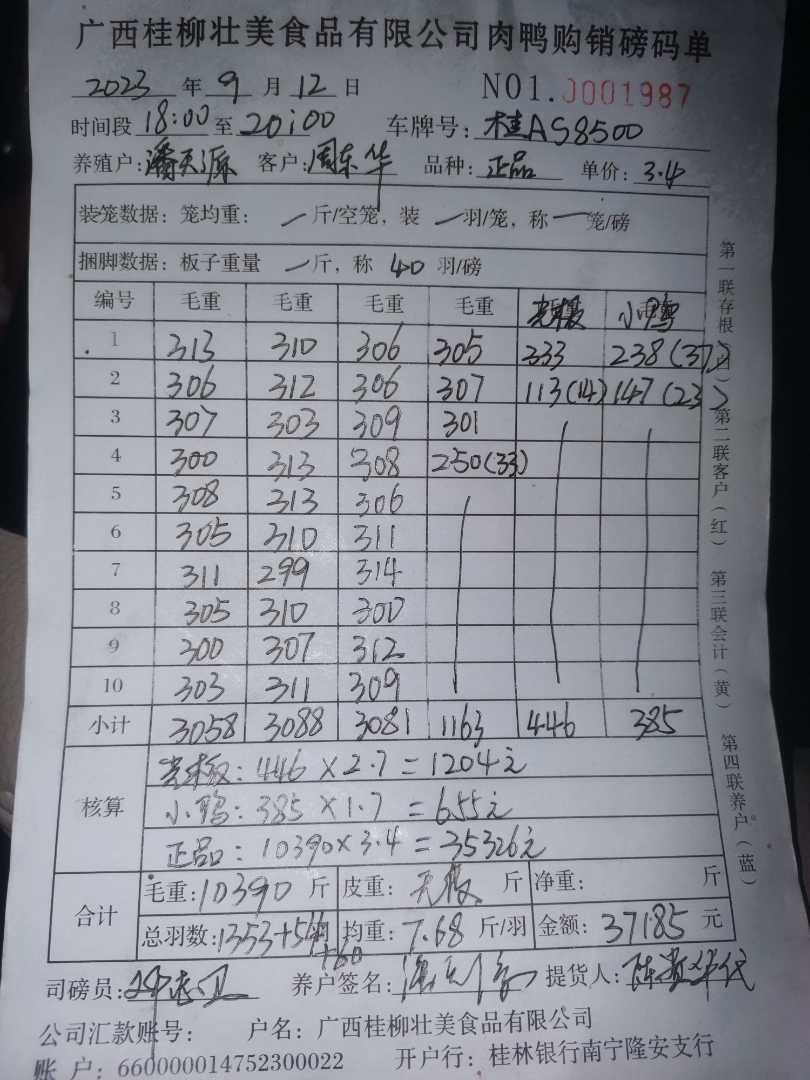 广西桂柳壮美食品有限公司肉鸭购销磅码单
2023 年 9 月 12 日 NO1. 0001987
时间段 18:00 至 20:00 车牌号: 桂AS8500
养殖户: 潘天源 客户: 周东华 品种: 正品 单价: 3.4
装笼数据: 笼均重: 一 斤/空笼, 装 一 羽/笼, 称 一 笼/磅
捆脚数据: 板子重量 一 斤, 称 40 羽/磅
编号 毛重 毛重 毛重 毛重 小鸭
1 313 310 306 305 333 238(37)
2 306 312 306 307 113(14) 147(23)
3 307 303 309 301
4 300 313 308 250(33)
5 308 313 306
6 305 310 311
7 311 299 314
8 305 310 300
9 300 307 312
10 303 311 309
小计 3058 3088 3081 1163 446 385
核算
: 446×2.7=1204元
小鸭: 385×1.7=655元
正品: 10390×3.4=35326元
合计
毛重: 10390 斤 皮重: 斤 净重: 斤
总羽数: 1353+54 +60 均重: 7.68 斤/羽 金额: 37185 元
司磅员: 养户签名: 提货人:
公司汇款账号: 户名: 广西桂柳壮美食品有限公司
账 户: 660000014752300022 开户行: 桂林银行南宁隆安支行
第一联存根(白)
第二联客户(红)
第三联会计(黄)
第四联养户(蓝)